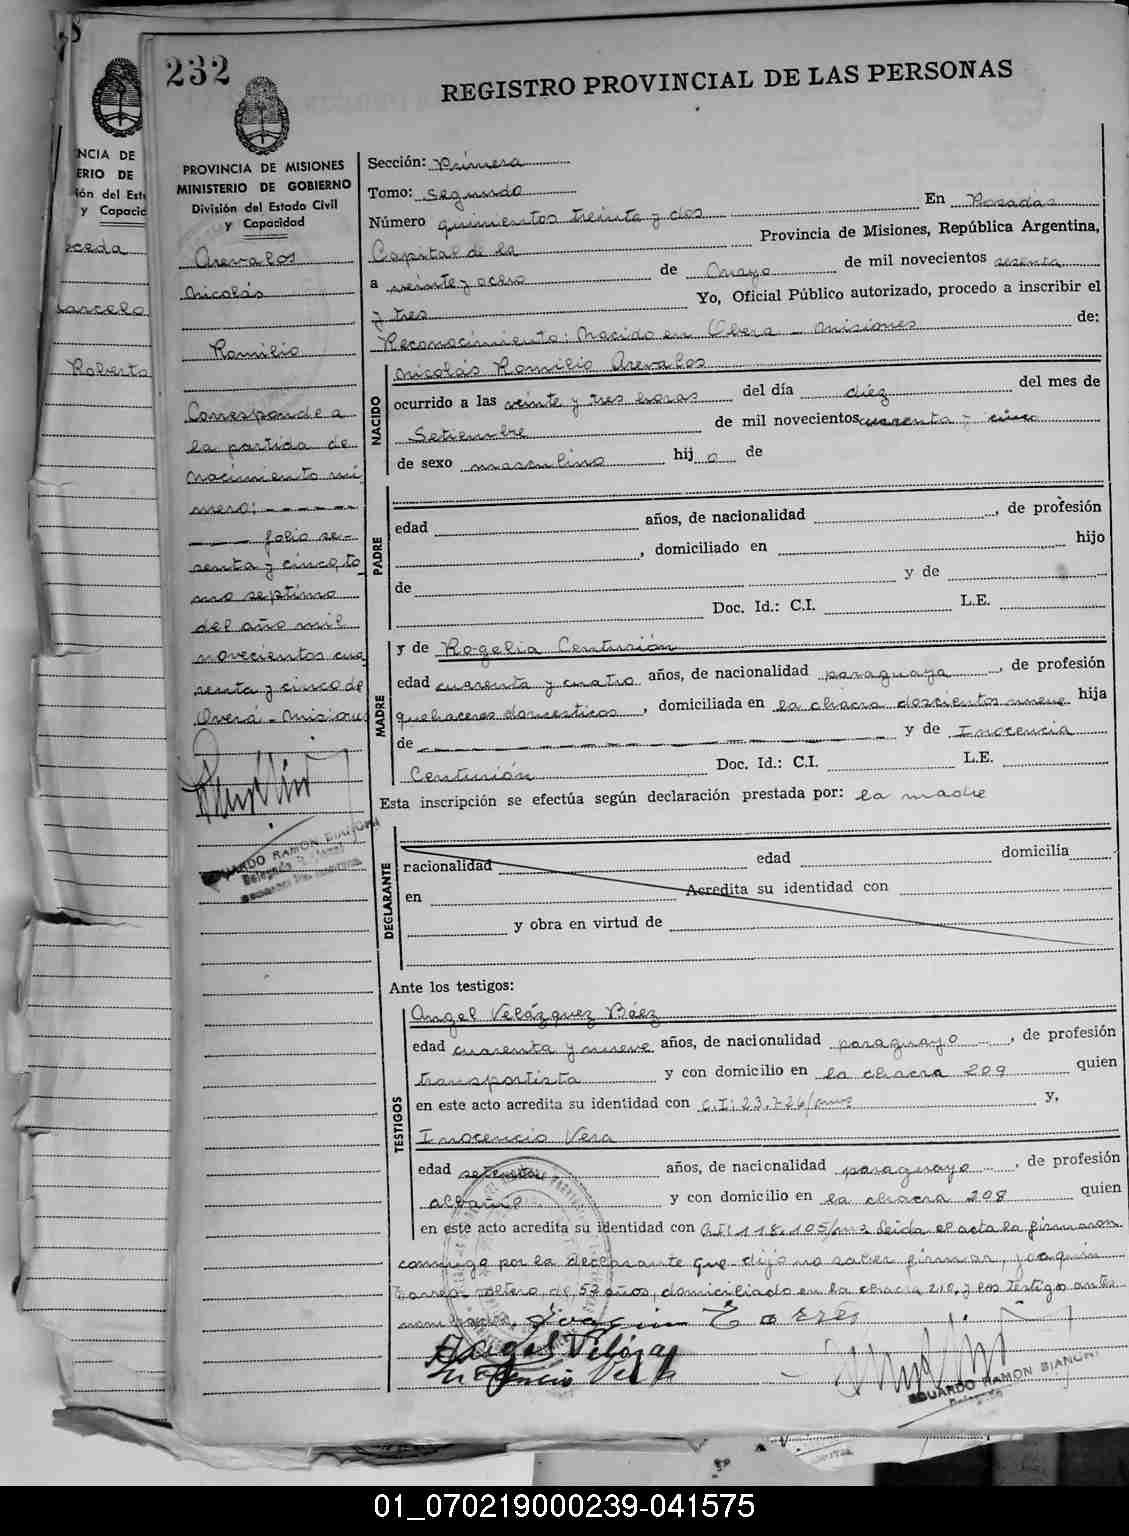 232
REGISTRO PROVINCIAL DE LAS PERSONAS
NCIA DE
ERIO DE
ión del Est
y Capacid
Roberto
PROVINCIA DE MISIONES
MINISTERIO DE GOBIERNO
División del Estado Civil
y Capacidad
Arevalos
Nicolás
Romilio
Corresponde a
la partida de
nacimiento nú
mero:
folio se-
senta y cinco, to
mo septimo
del año mil
novecientos cua
renta y cinco de
Overá - Misiones
EDUARDO RAMON BIANCHI
Sección: Primera
Tomo: Segundo
Número quinientos treinta y dos En Posadas
Capital de la Provincia de Misiones, República Argentina,
a veinte y ocho de Mayo de mil novecientos sesenta
y tres Yo, Oficial Público autorizado, procedo a inscribir el
Reconocimiento: Nacido en Obera - Misiones de:
NACIDO
Nicolás Romilio Arevalos
ocurrido a las veinte y tres horas del día diez del mes de
Setiembre de mil novecientos cuarenta y cinco
de sexo masculino hij o de
PADRE
edad años, de nacionalidad , de profesión
, domiciliado en hijo
de y de
Doc. Id.: C.I. L.E.
MADRE
y de Rogelia Centurión
edad cuarenta y cuatro años, de nacionalidad paraguaya , de profesión
quehaceres domesticos , domiciliada en la chacra doscientos nueve hija
de y de Inocencia
Centurión Doc. Id.: C.I. L.E.
Esta inscripción se efectúa según declaración prestada por: la madre
DECLARANTE
nacionalidad edad domicilia
en Acredita su identidad con
y obra en virtud de
Ante los testigos:
TESTIGOS
Angel Velázquez Báez
edad cuarenta y nueve años, de nacionalidad paraguayo , de profesión
transportista y con domicilio en la chacra 209 quien
en este acto acredita su identidad con C.I: 23.726 y,
Inocencio Vera
edad setenta años, de nacionalidad paraguayo , de profesión
albañil y con domicilio en la chacra 208 quien
en este acto acredita su identidad con 118.105 Leida el acta la firmaron
conmigo por la declarante que dijo no saber firmar, Joaquin
Torres, soltero, de 52 años, domiciliado en la chacra 210, y los testigos antes
Joaquin Torres
Inocencio Vera
EDUARDO RAMON BIANCHI
Delegado
01_070219000239-041575